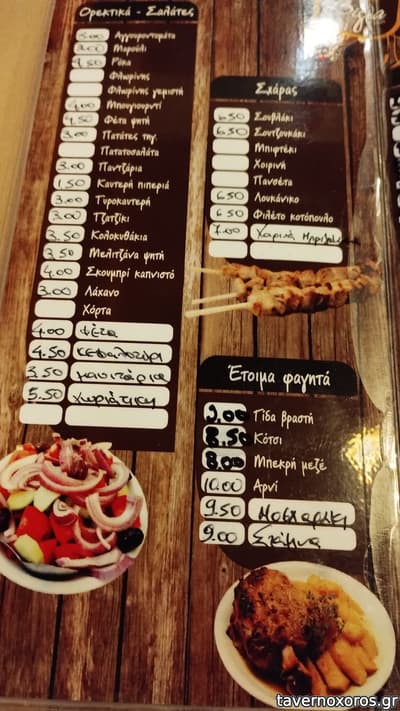 Ορεκτικά - Σαλάτες
5.00 Αγγουροντομάτα
3.00 Μαρούλι
4.50 Ρόκα
Φλωρίνης
Φλωρίνης γεμιστή
4.00 Μπουγιουρντί
4.50 Φέτα ψητή
3.00 Πατάτες τηγ.
Πατατοσαλάτα
3.00 Παντζάρια
1.50 Καυτερή πιπεριά
3.00 Τυροκαυτερή
3.00 Τζατζίκι
3.50 Κολοκυθάκια
3.50 Μελιτζάνα ψητή
4.00 Σκουμπρί καπνιστό
3.00 Λάχανο
Χόρτα
4.00 Φέτα
4.50 κεφαλοτύρι
3.50 μανιτάρια
5.50 χωριάτικη
Σχάρας
6.50 Σουβλάκι
6.50 Σουτζουκάκι
Μπιφτέκι
Χοιρινή
Πανσέτα
6.50 Λουκάνικο
6.50 Φιλέτο κοτόπουλο
7.00
Έτοιμα φαγητά
9.00 Γίδα βραστή
8.50 Κότσι
8.00 Μπεκρή μεζέ
10.00 Αρνί
9.50 Μοσχαράκι
9.00 Στάμνα
tavernoxoros.gr